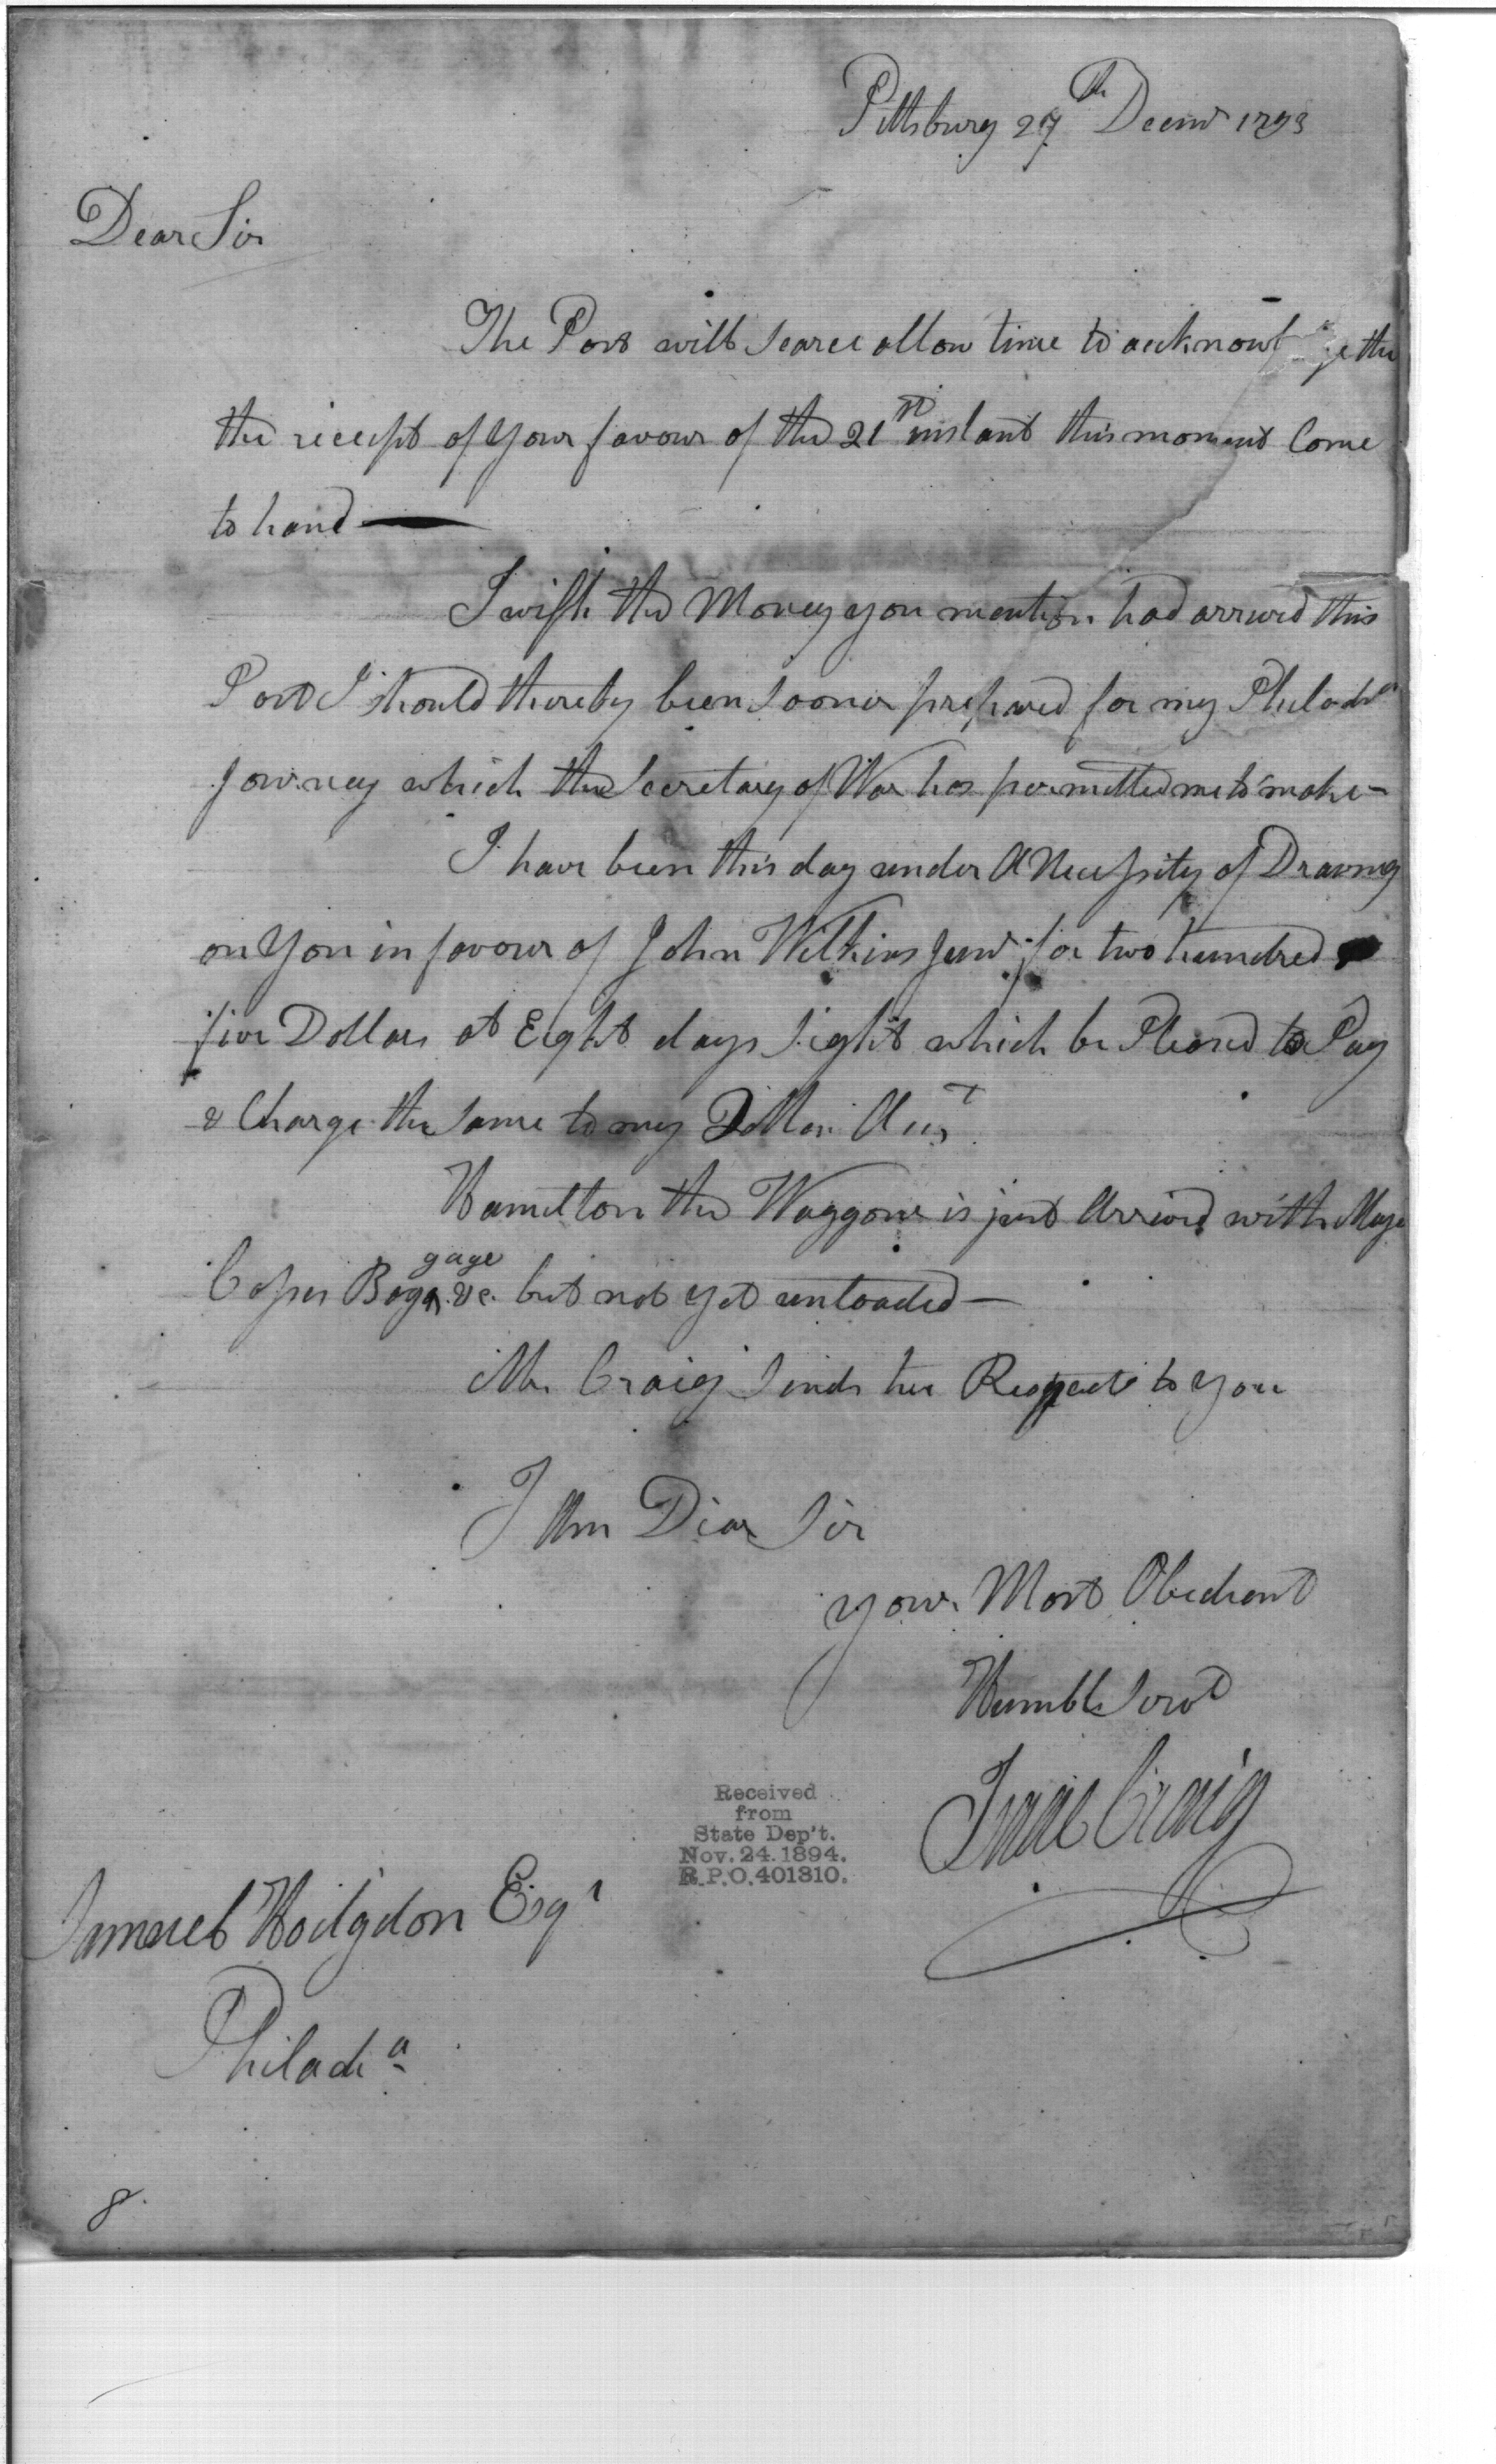 Pittsburg 27th Decmr 1793
Dear Sir
The Post will scarce allow time to acknowl ge the
the receipt of your favour of the 21st instant this moment Come
to hand —
I wish the Money you mention had arrived this
Post I should thereby been sooner prepared for my Philada
Journey which the Secretary of War has permitted me to make —
I have been this day under A Necessity of Drawing
on You in favour of John Wilkins Junr for two hundred
five Dollars at Eight days sight which be Pleased to Pay
& Charge the same to my Accт
Hamilton the Waggoner is just Arrived with Majr
gage
Bagg &c. but not yet unloaded —
Mrs Craig sends her Respects to you
I Am Dear Sir
your Most Obedient
Humble Servt
Isaac Craig
Received
from
State Dep't.
Nov. 24. 1894.
R.P.O. 401310.
Samuel Hodgdon Esqr
Philada
8